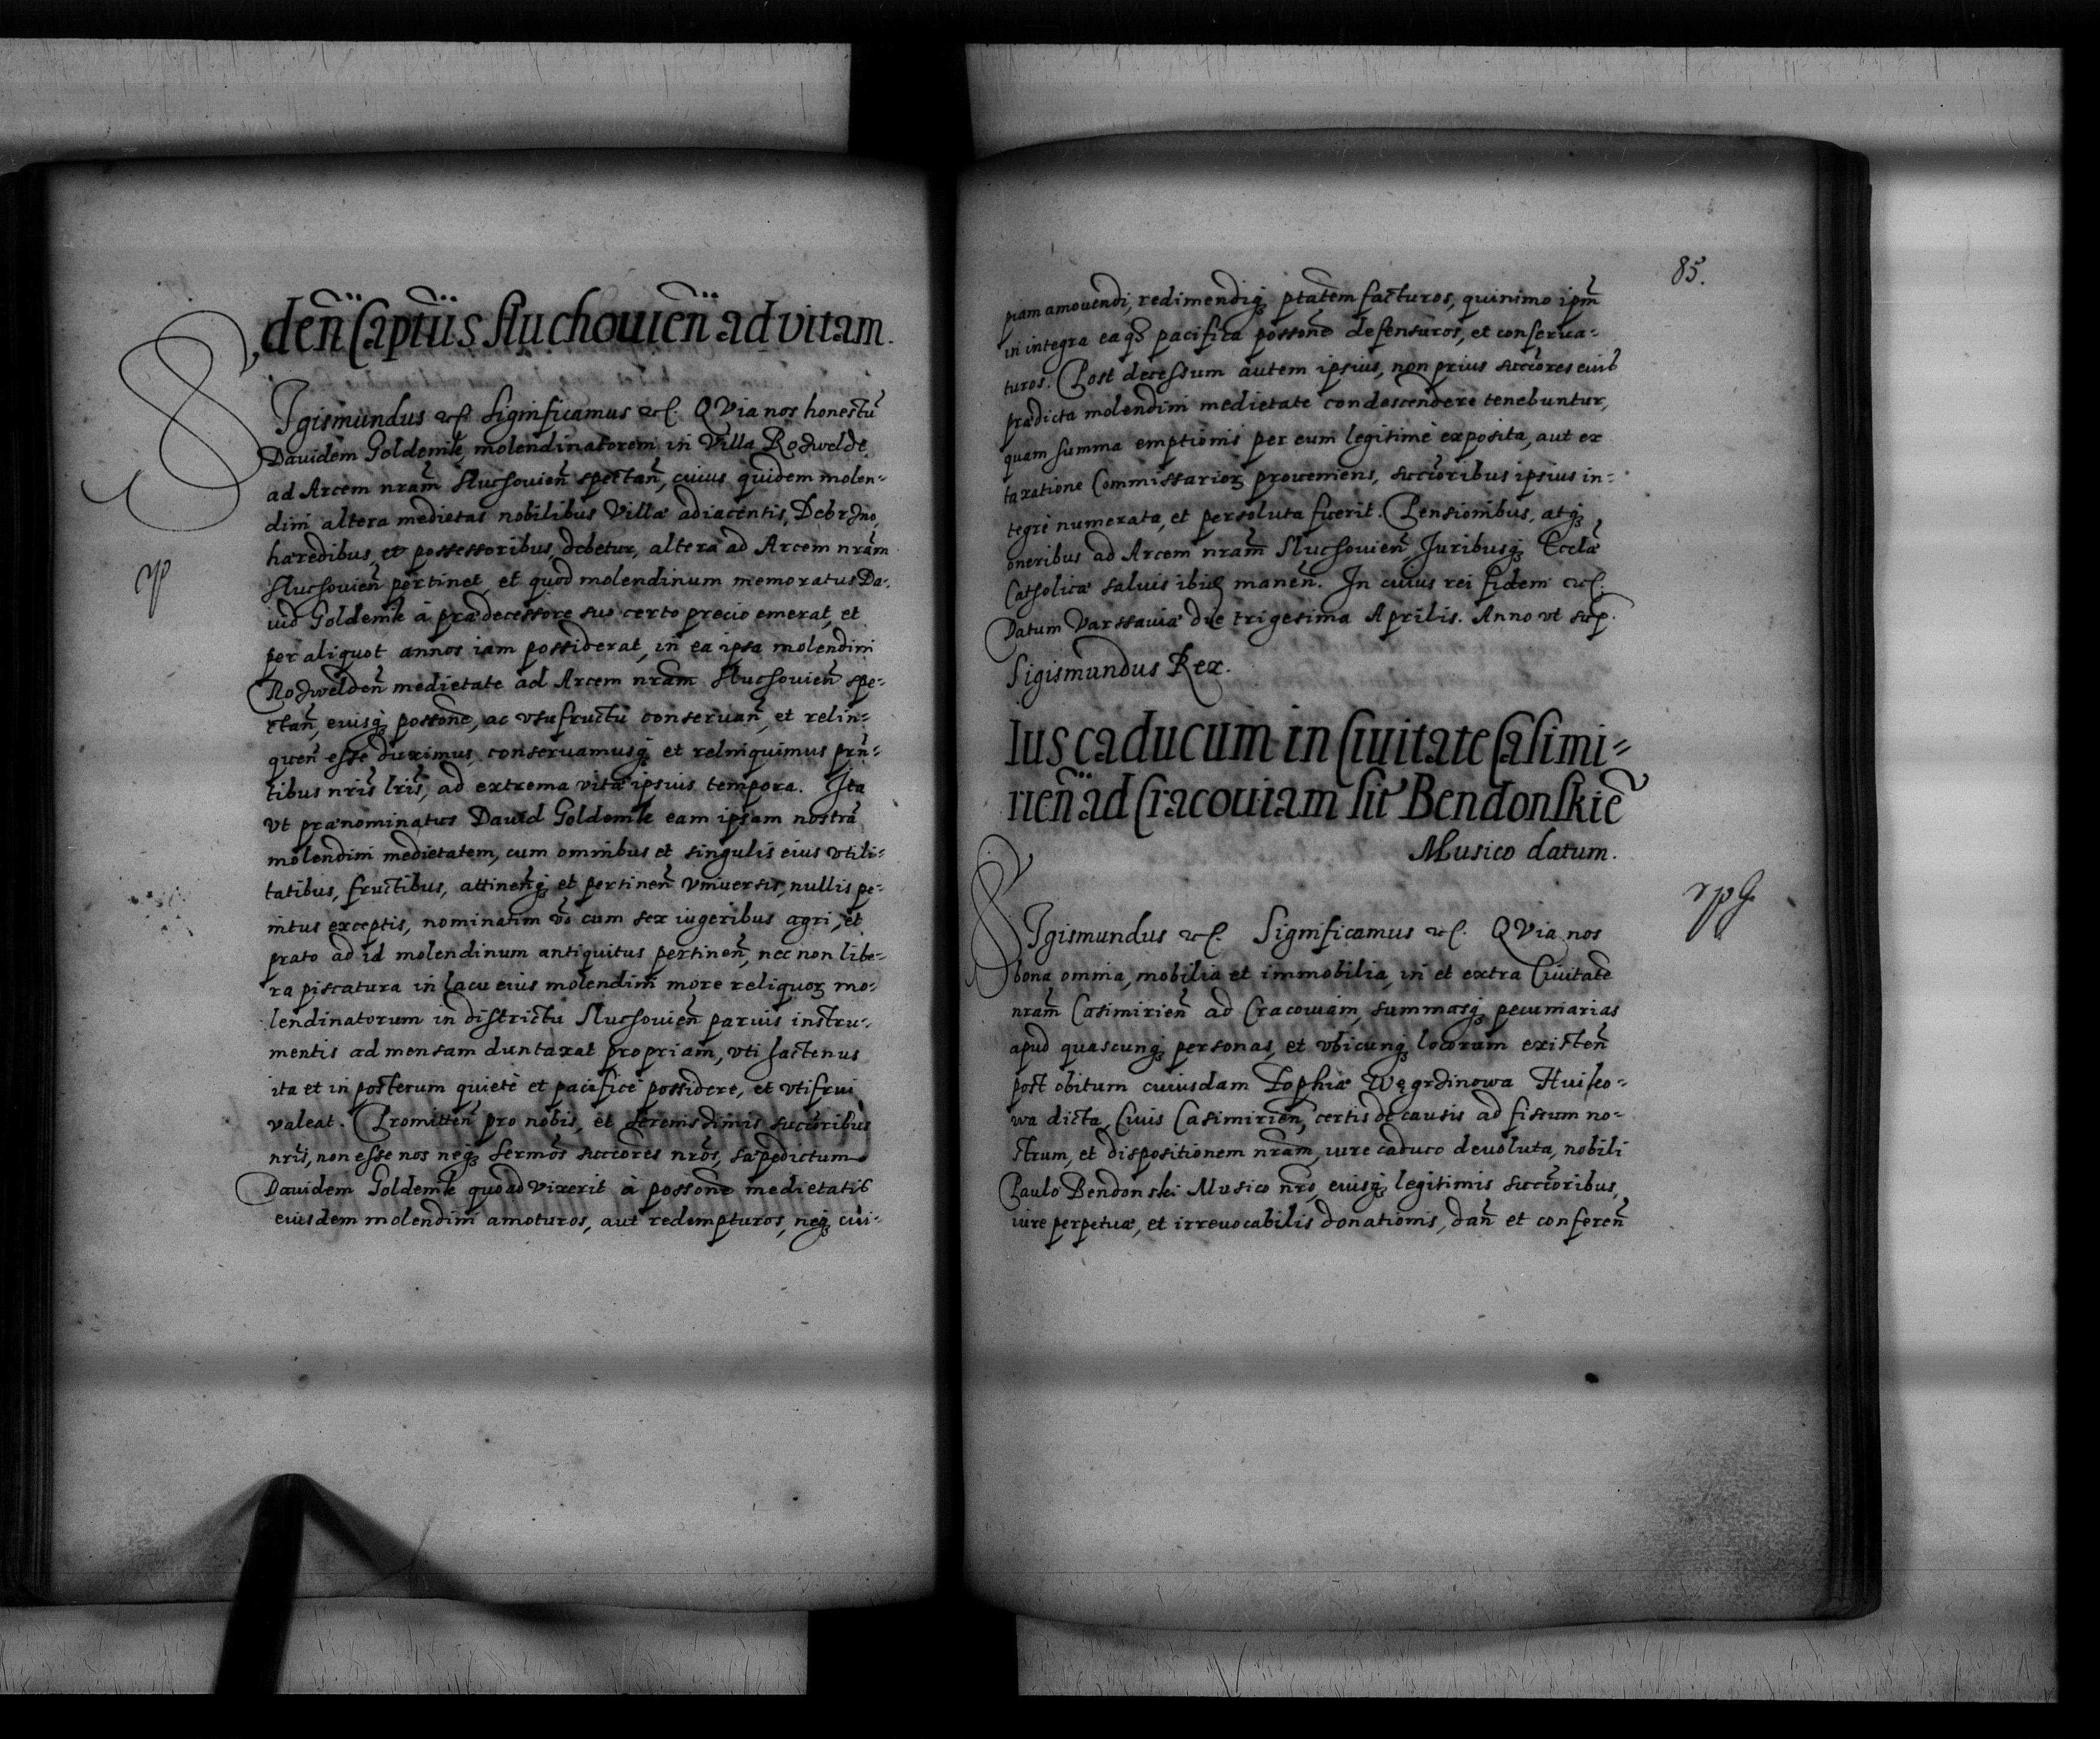 den̄ Captiis Sluchouien̄ ad vitam.
SIgismundus etc. Significamus etc. QVia nos honestū
Dauidem Goldemk, molendinatorem in Villa Rodwelde
ad Arcem nram̄ Sluchouien̄ spectan̄, cuius quidem molen-
dini altera medietas nobilibus Villæ adiacentis, Debrzno,
hæredibus, et possessoribus, debetur, altera ad Arcem nram̄
Sluchouien̄ pertinet, et quod molendinum memoratus Da-
uid Goldemk à prædecessore suo certo precio emerat, et
per aliquot annos iam possiderat, in ea ipsa molendini
Rodwelden̄ medietate ad Arcem nram̄ Sluchouien̄ spe-
ctan̄, eiusq; posson̄e, ac vsufructu conseruan̄, et relin-
quen̄ esse duximus, conseruamusq; et relinquimus prn̄-
tibus nris̄ lris̄, ad extrema vitæ ipsius tempora. Ita
vt prænominatus Dauid Goldemk eam ipsam nostrā
molendini medietatem, cum omnibus et singulis eius vtili-
tatibus, fructibus, attinen̄q; et pertinen̄ vniuersis, nullis pe-
nitus exceptis, nominatim vō cum sex iugeribus agri, et
prato ad id molendinum antiquitus pertinen̄, nec non libe-
ra piscatura in lacu eius molendini more reliquoꝝ mo-
lendinatorum in districtu Sluchouien̄ paruis instru-
mentis ad mensam duntaxat propriam, vti hactenus
ita et in posterum quietè et pacificè possidere, et vtifrui
valeat. Promitten̄ pro nobis, et Serenissimis succōribus
nris̄, non esse nos neq; Sermōs succōres nrōs, sæpedictum
Dauidem Goldemk quoad vixerit à posson̄e medietatis
eiusdem molendini amoturos, aut redempturos, neq; cui-
85.
piam amouendi, redimendiq; ptātem facturos, quinimo ipm̄
in integra eaq; pacifica posson̄e defensuros, et conserua-
turos. Post decessum autem ipsius, non prius succōres eius
prædicta molendini medietate condescendere tenebuntur,
quam summa emptionis per eum legitimè exposita, aut ex
taxatione Commissarioꝝ proueniens, succōribus ipsius in-
tegrè numerata, et persoluta fuerit. Pensionibus, atq;
oneribus ad Arcem nram̄ Sluchouien̄ Iuribusq; Ecclæ
Catholicæ saluis ibid̄ manen̄. In cuius rei fidem etc.
Datum Varssauiæ die trigesima Aprilis. Anno vt sup.
Sigismundus Rex.
Ius caducum in Ciuitate Casimi-
rien̄ ad Cracouiam sit Bendonskiē
Musico datum.
SIgismundus etc. Significamus etc. QVia nos
bona omnia, mobilia et immobilia, in et extra Ciuitatē
nram̄ Casimirien̄ ad Cracouiam, summasq; pecuniarias
apud quascunq; personas, et vbicunq; locorum existen̄
post obitum cuiusdam Zophiæ Węgrdinowa
wa dicta, Ciuis Casimirien̄, certis de causis ad fiscum no-
strum, et dispositionem nram̄, iure caduco deuoluta, nobili
Paulo Bendonski Musico nrō, eiusq; legitimis succōribus,
iure perpetuæ, et irreuocabilis donationis, dan̄ et conferen̄